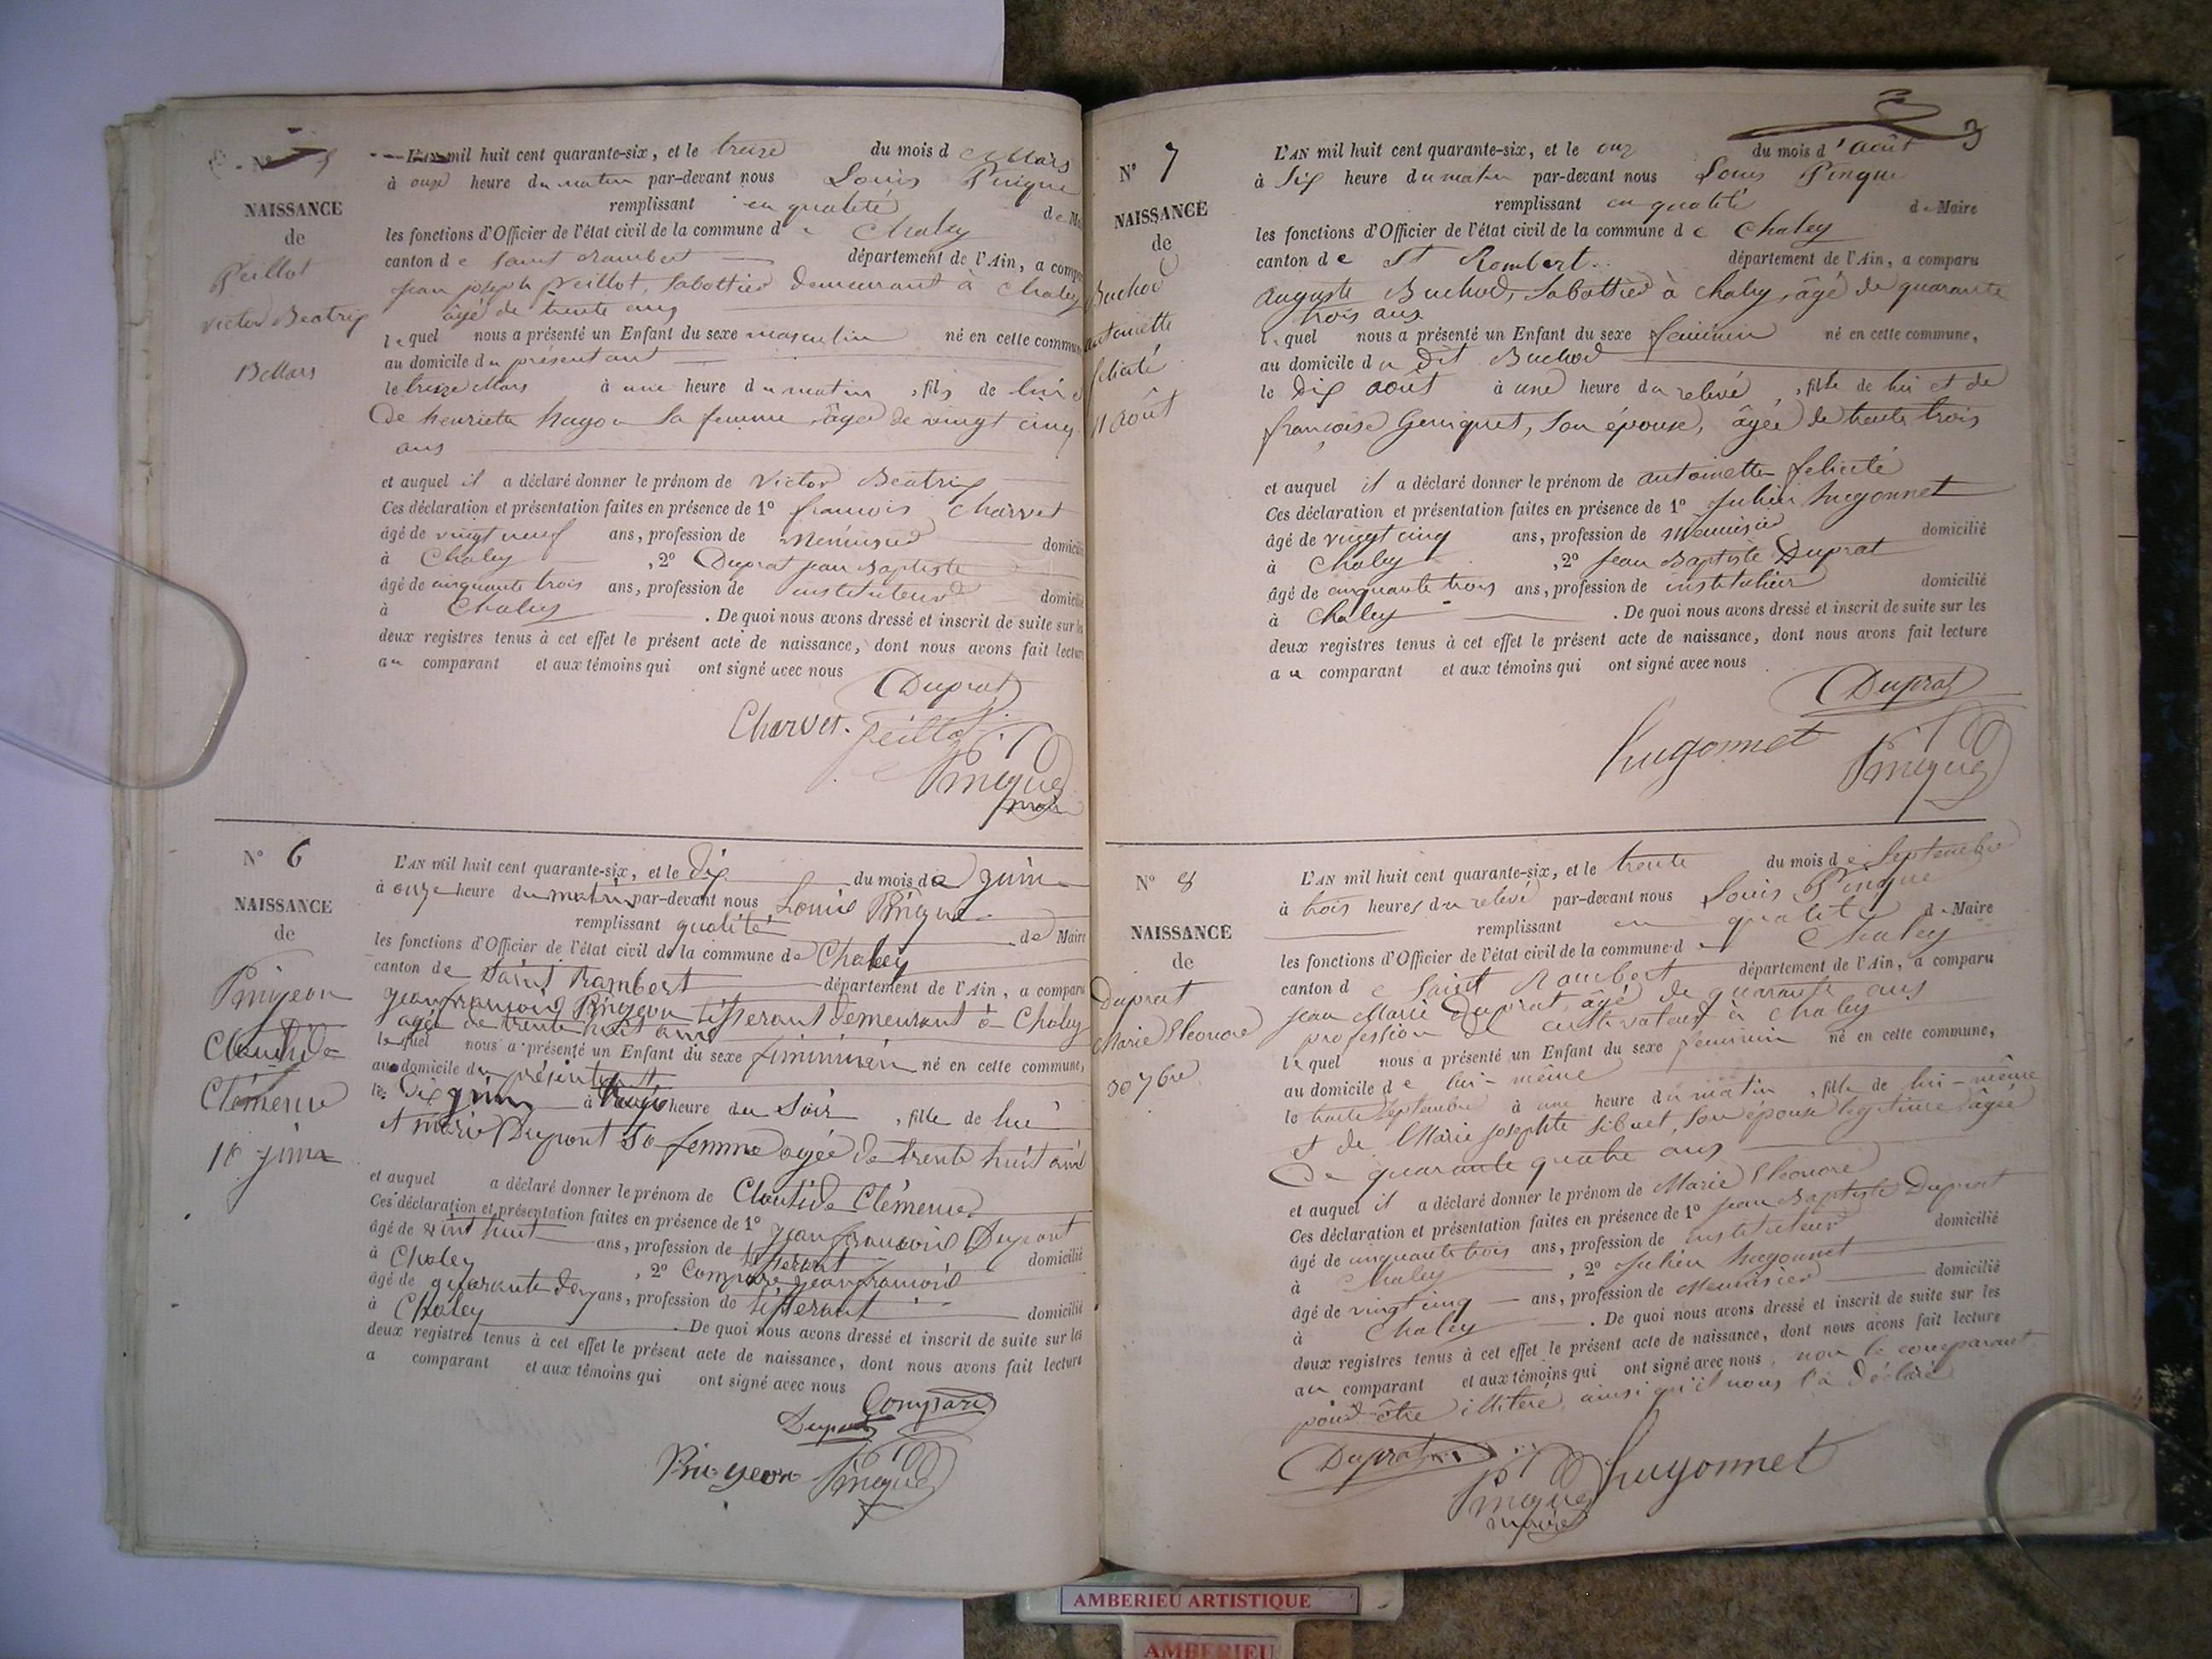 N° 5
NAISSANCE
de
Peillot
Victor Beatrix
13 Mars
L'AN mil huit cent quarante-six, et le treize du mois d Mars
à onze heure du matin par-devant nous Louis Pingue
remplissant en qualité de
les fonctions d'Officier de l'état civil de la commune de Chaley
canton de Saint Rambert département de l'Ain, a compa
jean joseph Peillot, Sabottier demeurant à Chaley
âgé de trente ans
lequel nous a présenté un Enfant du sexe masculin né en cette commune
au domicile du présentant
le treize Mars à une heure du matin, fils de lui
de henriette hugon sa femme, âgée de vingt cinq
ans
et auquel il a déclaré donner le prénom de Victor Beatrix
Ces déclaration et présentation faites en présence de 1° francois Charvet
âgé de vingt neuf ans, profession de Menuisier domicilié
à Chaley, 2° Duprat jean Baptiste
âgé de cinquante trois ans, profession de instituteur domicilié
à Chaley. De quoi nous avons dressé et inscrit de suite sur les
deux registres tenus à cet effet le présent acte de naissance, dont nous avons fait lecture
au comparant et aux témoins qui ont signé avec nous
Duprat
Charvet. Peillot
Pingue
maire
N° 6
NAISSANCE
de
Pingeon
Clautide
Clémence
10 juin
L'AN mil huit cent quarante-six, et le dix du mois de juin
à onze heure du matin par-devant nous Louis Pingue
remplissant qualité de Maire
les fonctions d'Officier de l'état civil de la commune de Chaley
canton de Saint Rambert département de l'Ain, a comparu
jean francois Pingeon tisserant demeurant à Chaley
agée de trente huit ans
lequel nous a présenté un Enfant du sexe fiminin né en cette commune,
au domicile du présentant
le Dix juin à heure du Soir, fille de lui
et marie Dupont sa femme agée de trente huit ans
et auquel a déclaré donner le prénom de Clautide Clémence
Ces déclaration et présentation faites en présence de 1° jean francois Dupont
âgé de vint huit ans, profession de tisserant domicilié
à Chaley, 2° Compare jean francois
âgé de quarante deux ans, profession de tisserant
à Chaley domicilié
. De quoi nous avons dressé et inscrit de suite sur les
deux registres tenus à cet effet le présent acte de naissance, dont nous avons fait lecture
a comparant et aux témoins qui ont signé avec nous
Compare
Dupont
Pingeon Pingue
3
N° 7
NAISSANCE
de
Buchod
antoinette
felicité
11 août
L'AN mil huit cent quarante-six, et le onz du mois d'août
à Six heure du matin par-devant nous Louis Pingue
remplissant en qualité de Maire
les fonctions d'Officier de l'état civil de la commune de Chaley
canton de St Rambert département de l'Ain, a comparu
auguste Buchod, Sabottier à Chaley, âgé de quarante
trois ans
lequel nous a présenté un Enfant du sexe féminin né en cette commune,
au domicile du dit Buchod
le dix août à une heure du relevé, fille de lui et de
françoise Geniquet, son épouse, âgée de trente trois
et auquel il a déclaré donner le prénom de antoinette felicité
Ces déclaration et présentation faites en présence de 1° Julien hugonnet
âgé de vingt cinq ans, profession de Menuisier domicilié
à Chaley, 2° jean Baptiste Duprat
âgé de cinquante trois ans, profession de instituteur domicilié
à Chaley. De quoi nous avons dressé et inscrit de suite sur les
deux registres tenus à cet effet le présent acte de naissance, dont nous avons fait lecture
au comparant et aux témoins qui ont signé avec nous
Duprat
hugonnet Pingue
N° 8
NAISSANCE
de
Duprat
Marie Eleonore
30 7bre
L'AN mil huit cent quarante-six, et le trente du mois de Septembre
à trois heures du relevé par-devant nous Louis Pingue
remplissant en qualité de Maire
les fonctions d'Officier de l'état civil de la commune d Chaley
canton de Saint Rambert département de l'Ain, a comparu
jean Marie Duprat âgé de quarante ans
profession de cultivateur à Chaley
lequel nous a présenté un Enfant du sexe féminin né en cette commune,
au domicile de lui-même
le trente Septembre à une heure du matin, fille de lui-même
et de Marie josephte Sibuet, son épouse legitime âgée
De quarante quatre ans
et auquel il a déclaré donner le prénom de Marie Eleonore
Ces déclaration et présentation faites en présence de 1° jean Baptiste Duprat
âgé de cinquante trois ans, profession de instituteur domicilié
à Chaley, 2° Julien hugonnet
âgé de vingt cinq ans, profession de Menuisier domicilié
à Chaley. De quoi nous avons dressé et inscrit de suite sur les
deux registres tenus à cet effet le présent acte de naissance, dont nous avons fait lecture
au comparant et aux témoins qui ont signé avec nous, non le comparant
pour être illiteré, ainsi qu'il nous l'a déclaré
Duprat
Pingue hugonnet
maire
AMBERIEU ARTISTIQUE
AMBERIEU